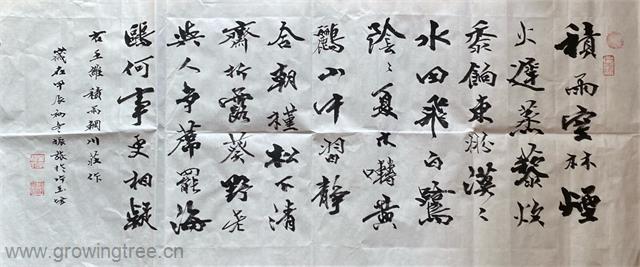 積雨空林煙
火遲蒸藜炊
黍餉東菑漠々
水田飛白鷺
陰々夏木囀黃
鸝山中習靜
朝槿松下清
齋折露葵野老
與人爭蓆罷海
鷗何事更相疑
右王維積雨輞川莊作
歲在甲辰初冬振旅於
www.growingtree.cn